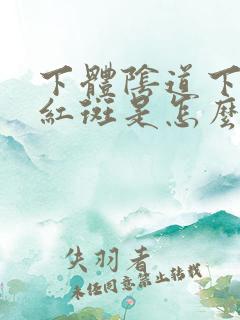 下體陰道下
紅斑是怎麼
失羽者
未經同意禁止轉載